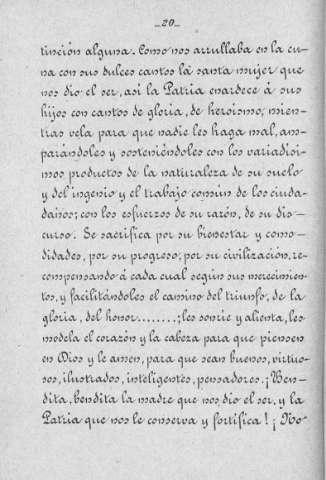 -20-
tinción alguna. Como nos arrullaba en la cu-
na con sus dulces cantos la santa mujer que
nos dio el ser, asi la Patria enardece á sus
hijos con cantos de gloria, de heroismo; mien-
tras vela para que nadie les haga mal, am-
parándoles y sosteniéndoles con los variadísi-
mos productos de la naturaleza de su suelo
y del ingenio y el trabajo común de los ciuda-
danos; con los esfuerzos de su razón, de su dis-
curso. Se sacrifica por su bienestar y como-
didades, por su progreso, por su civilización, re-
compensando á cada cual según sus merecimien-
tos, y facilitándoles el camino del triunfo, de la
gloria, del honor........; les sonríe y alienta, les
modela el corazón y la cabeza para que piensen
en Dios y le amen, para que sean buenos, virtuo-
sos, ilustrados, inteligentes, pensadores. ¡Ben-
dita, bendita la madre que nos dio el ser, y la
Patria que nos le conserva y fortifica! ¡No-